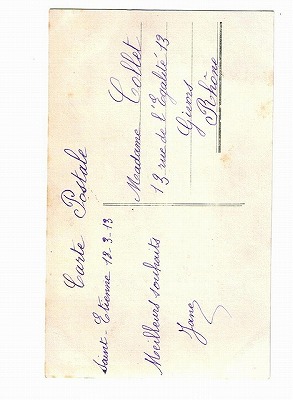 Carte Postale
Saint-Etienne 18-3-13
Meilleurs souhaits
Jane
Madame Collet
13 rue de l'Egalité 13
Givors
Rhône